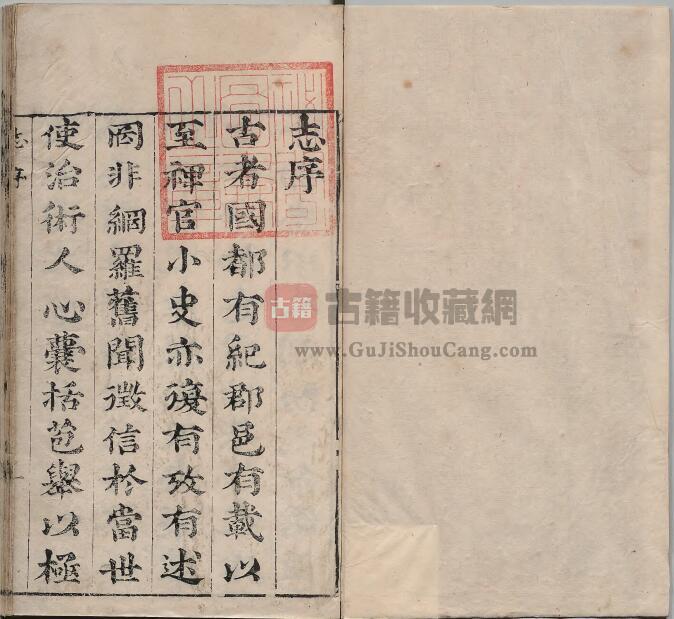 志序
古者國都有紀郡邑有載以
至稗官小史亦復有攷有述
罔非網羅舊聞徵信於當世
使治術人心囊括苞舉以極
志序
古籍
古籍收藏網
www.GuJiShouCang.com